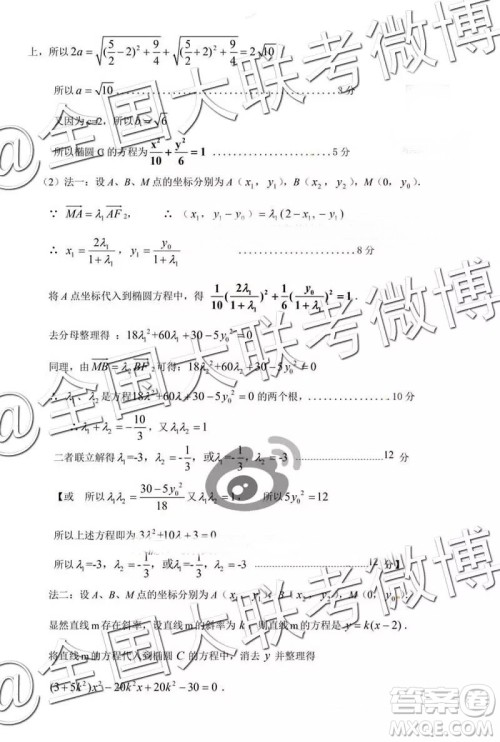 上，所以 2a=√((5/2-2)²+9/4)+√((5/2+2)²+9/4)=2√10
所以 a=√10 ................3 分
又因为 c=2，所以 b=√6
所以椭圆 C 的方程为 x²/10+y²/6=1 ................5 分
（2）法一：设 A、B、M 点的坐标分别为 A（x₁，y₁），B（x₂，y₂），M（0，y₀）．
∵ MA=λ₁AF₂， ∴（x₁，y₁-y₀）=λ₁(2-x₁，-y₁)
∴ x₁=2λ₁/(1+λ₁)，y₁=y₀/(1+λ₁) ................8 分
将 A 点坐标代入到椭圆方程中，得 1/10(2λ₁/(1+λ₁))²+1/6(y₀/(1+λ₁))²=1．
去分母整理得：18λ₁²+60λ₁+30-5y₀²=0
同理，由 MB=λ₂BF₂ 可得：18λ₂²+60λ₂+30-5y₀²=0
∴ λ₁、λ₂是方程18λ²+60λ+30-5y₀²=0 的两个根，................10 分
∴ λ₁+λ₂=-10/3
二者联立解得λ₁=-3，λ₂=-1/3，或λ₁=-1/3，λ₂=-3 ................12 分
【或 所以 λ₁λ₂=(30-5y₀²)/18 又λ₁λ₂=1， 所以5y₀²=12
所以上述方程即为 3λ²+10λ+3=0
所以λ₁=-3，λ₂=-1/3，或λ₁=-1/3，λ₂=-3
法二：设 A、B、M 点的坐标分别为 A（x₁，y₁），B（x₂，y₂），M（0，y₀）．
显然直线 m 存在斜率，设直线 m 的斜率为 k，则直线 m 的方程是 y=k(x-2)．
将直线 m 的方程代入到椭圆 C 的方程中，消去 y 并整理得
(3+5k²)x²-20k²x+20k²-30=0．
@全国大联考微博
@全国大联考微博
答案圈